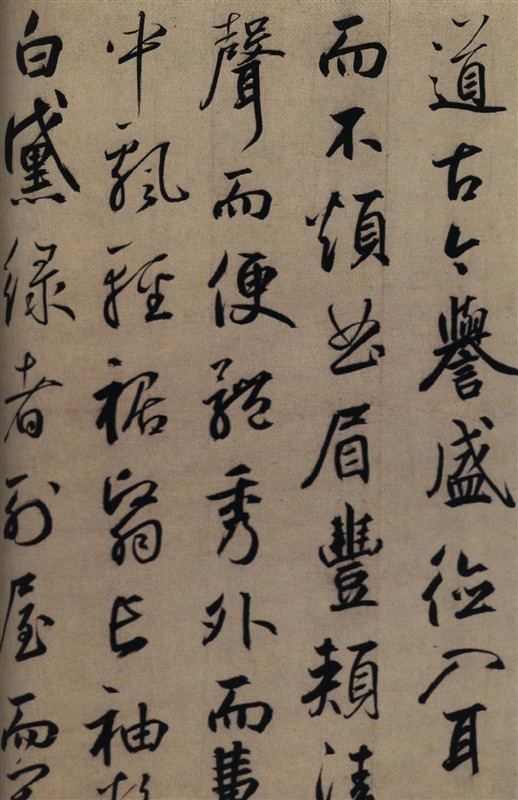 道古今譽盛德入耳
而不煩曲眉豐頰清
聲而便體秀外而惠
中飄輕裾翳長袖粉
白黛緑者列屋而